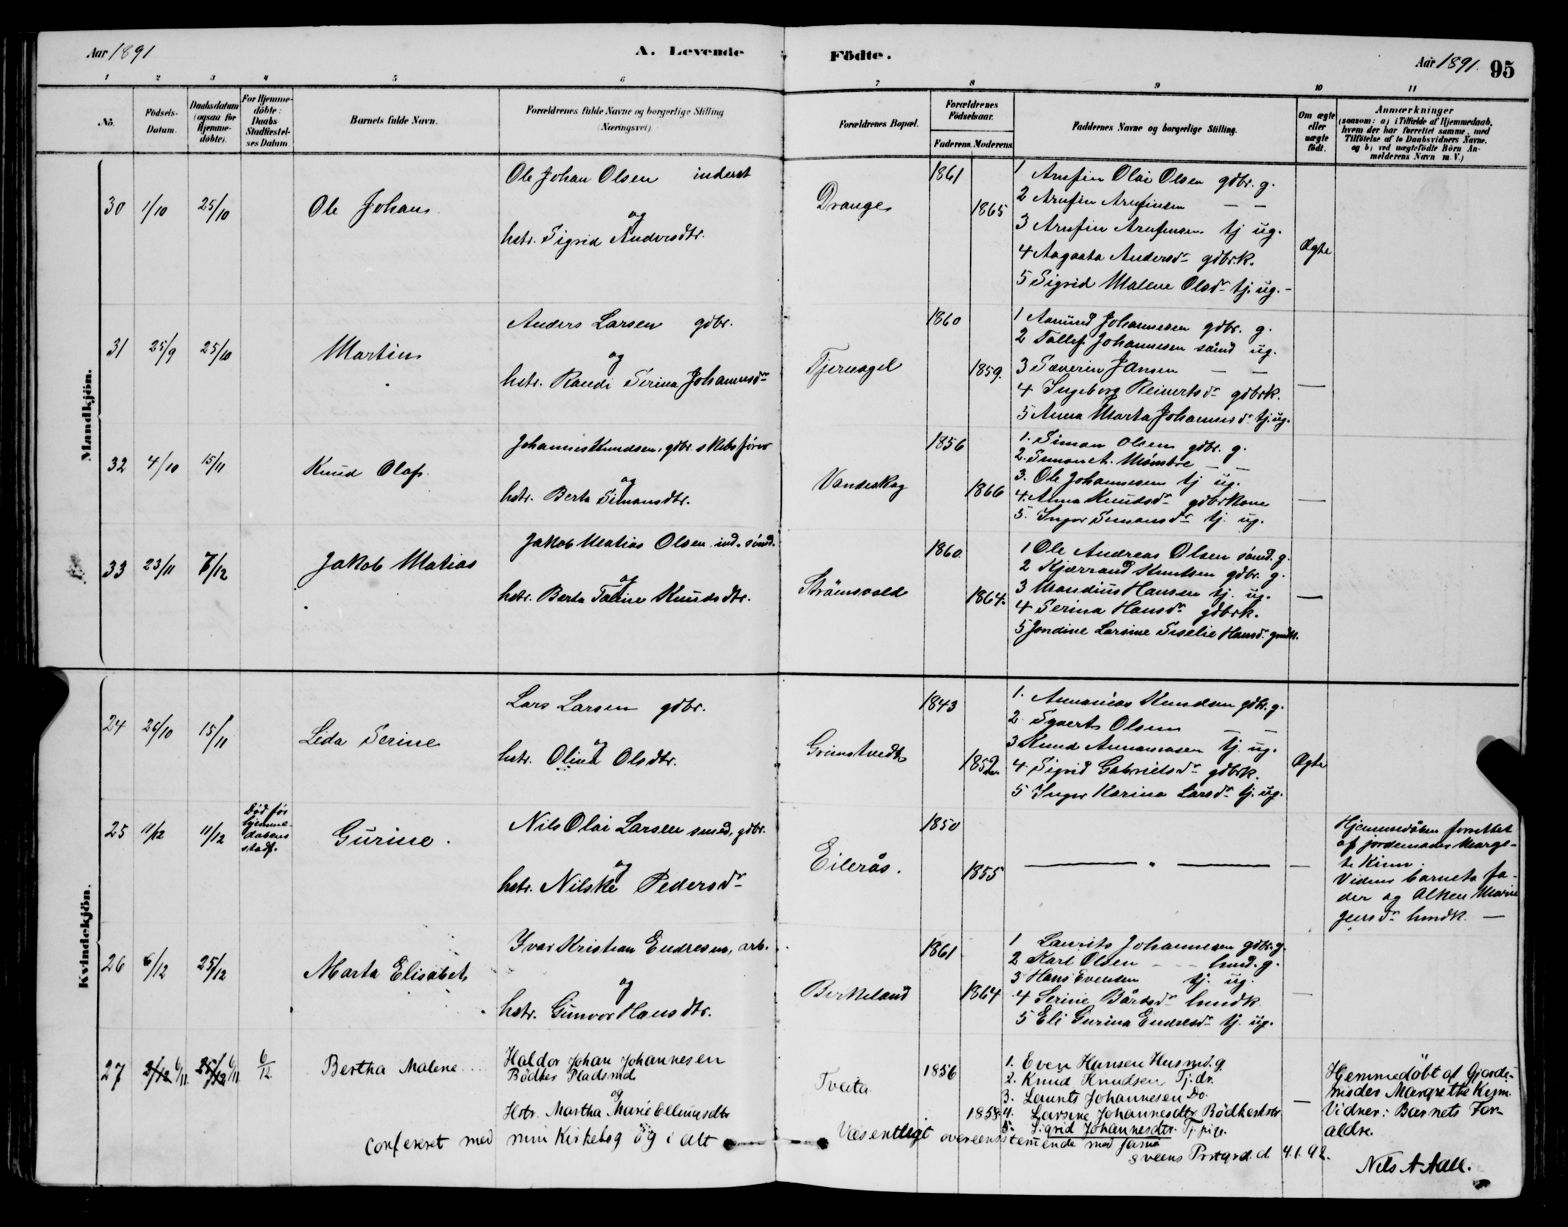 Aar 1891
A. Levende
Födte.
Aar 1891. 95
1 2 3 4 5 6 7 8 9 10 11
No.
Födsels-
Datum.
Daabsdatum
(ogsaa for
Hjemme-
döbte).
For Hjemme-
döbte:
Daabs
Stadfæstel-
ses Datum
Barnets fulde Navn.
Forældrenes fulde Navne og borgerlige Stilling
(Næringsvei)
Forældrenes Bopæl.
Forældrenes
Födselsaar.
Faderens. Moderens.
Faddernes Navne og borgerlige Stilling.
Om ægte
eller
uægte
födt.
Anmærkninger
(saasom: a) i Tilfælde af Hjemmedaab,
hvem der har forrettet samme, med
Tilföielse af to Daabsvidners Navne.
og b) ved uægtefödte Börn An-
melderens Navn m. V.)
Mandkjön.
30 1/10 25/10
Ole Johan
Ole Johan Olsen inderst
og
hstr. Sigrid Andersdtr.
Drange
1861
1865
1 Arnfin Olai Olsen gdbr. g.
2 Arnfin Arnfinsen — —
3 Arnfin Arnfinsen tj ug.
4 Aagaata Andersdr gdbr.k.
5 Sigrid Malene Olsdr tj. ug. -
Ægte
31 25/9 25/10
Martin
Anders Larsen gdbr.
og
hstr. Randi Serina Johannesdr
Tjernagel
1860
1859.
1 Amund Johannesen gdbr. g.
2 Tollef Johannesen sømd ug.
3 Severin Jansen — —
4 Ingeborg Reinertsdr gdbrk.
5 Anna Marta Johannesdr tj. ug.
—
32 4/10 15/11
Knud Olaf
Johannes Knudsen, gdbr. skibsfører
og
hstr. Berta Simonsdtr.
Vandaskog
1856
1866
1. Simon Olsen gdbr. g.
2. Simon t. Mømbre — —
3. Ole Johannesen tj ug.
4. Anna Knudsdr gdbrkone
5. Inger Simonsdr tj. ug.
—
33 23/11 7/12
Jakob Matias
Jakob Matias Olsen ind. sömd.
og
hstr. Berta Taline Knudsdtr.
Strömsvold
1860
1864.
1 Ole Andreas Olsen sömd. g.
2 Kjærrand Knutsen gdbr. g.
3 Mandius Hansen tj. ug.
4 Serina Hansdr gdbrk.
5 Jondine Larsine Siselie Hansdr gmdk.
—
Kvindekjön.
24 26/10 15/11
Lida Serine
Lars Larsen gdbr.
og
hstr. Olina Olsdtr.
Grimstvedt
1843
1852.
1. Annanias Knudsen gdbr. g.
2. Syvert Olsen — —
3 Knud Annaniasen tj. ug.
4. Sigrid Gabrielsdr gdbrk.
5 Inger Karina Larsdr tj. ug.
Ægte
25 11/12 11/12
Död før
hjemme-
daabens
stadf.
Gurine.
Nils Olai Larsen smed, gdbr.
og
hstr. Nilske Pedersdr
Eileräs.
1850
1855
— " —
—
Hjemmedåben forrettet
af jordemoder Marge-
te Kinn.
Vidner barnets fa-
der og Alken Marie
Jensdr hmdk. —
26 6/12 25/12
Marta Elisabet
Ivar Kristian Endresen, arb.
og
hstr. Gunvor Hansdtr.
Berkeland
1861
1864
1 Laurits Johannesen gdbr. g.
2 Karl Olsen - - hmd. g.
3 Hans Evensen tj. ug.
4 Serine Bårdsdr hmdk.
5 Eli Gurina Endresdr tj. ug.
—
27 6/11 6/11 6/12
Bertha Malene
Haldor Johan Johannesen
Bödker Pladsmd
og
Hstr. Martha Marie Ellingsdtr
Tveita
1856
1858
1. Even Hansen Husmd. g
2. Knud Knudsen Tj. dr.
3. Laurits Johannesen Do.
4. Larsine Johannesdtr Bödkerhstr.
5. Sigrid Johannesdtr Tj. pige
—
Hjemmedöbt af Gjorde-
moder Margrethe Kinn.
Vidner: Barnets For-
ældre.
Confereret med min Kirkebog og i alt Væsentligt overeensstemmende med samme
Sveens Præstegrd. d 4.1.92.
Nils A Aall.